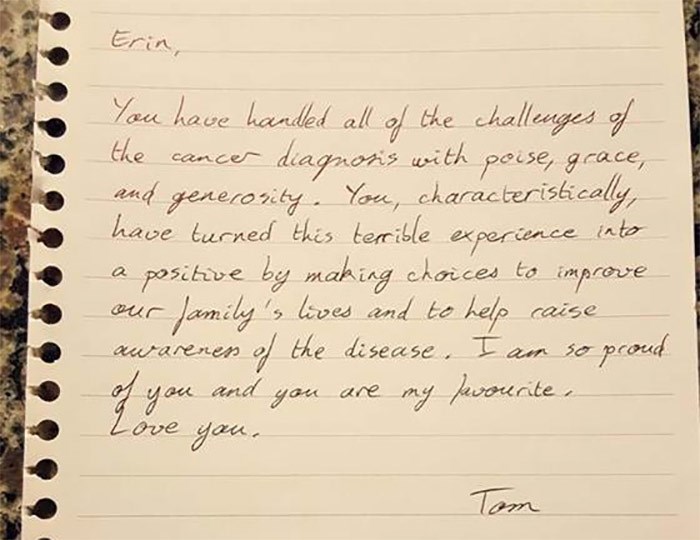 Erin,
You have handled all of the challenges of
the cancer diagnosis with poise, grace,
and generosity. You, characteristically,
have turned this terrible experience into
a positive by making choices to improve
our family's lives and to help raise
awareness of the disease. I am so proud
of you and you are my favourite.
Love you.
Tom